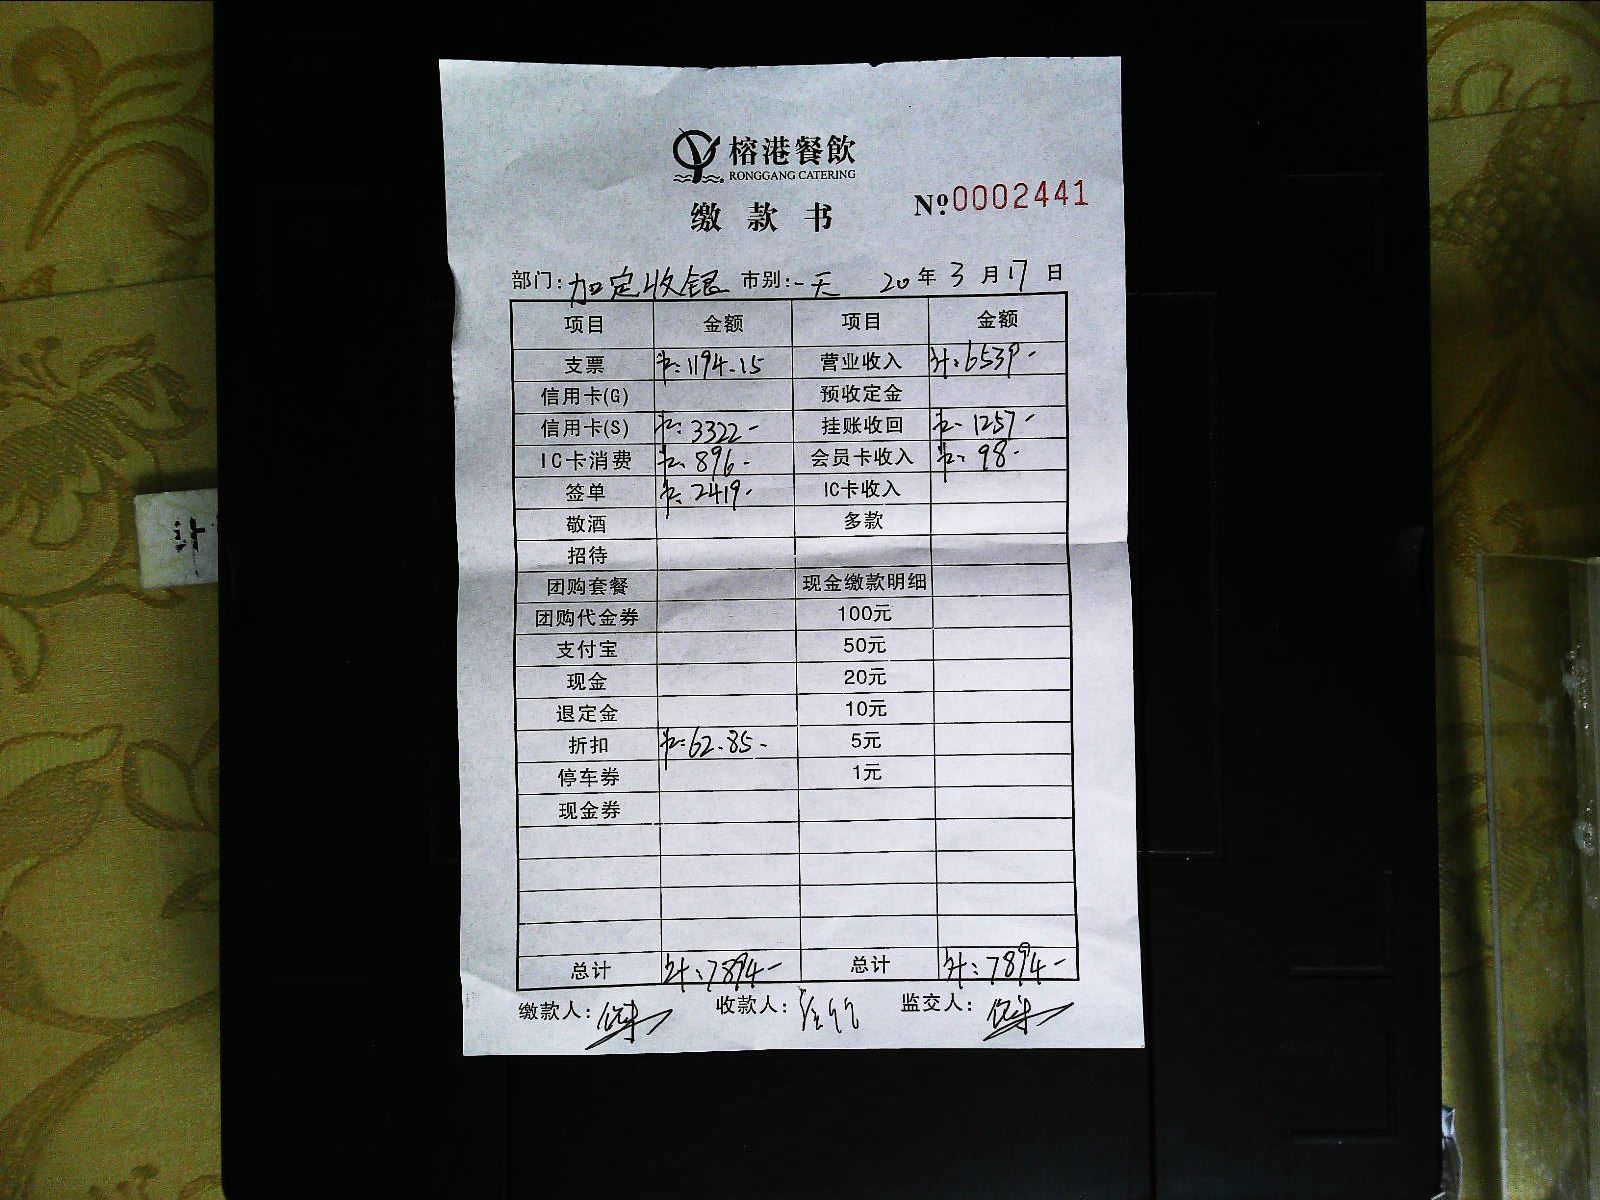 榕港餐飲
RONGGANG CATERING
缴款书 Nº0002441
部门:加定收银 市别:一天 20年3月17日
项目 金额 项目 金额
支票 1194.15 营业收入 计:6539-
信用卡(G) 预收定金
信用卡(S) 3322- 挂账收回 1257-
IC卡消费 896- 会员卡收入 98-
签单 2419- IC卡收入
敬酒 多款
招待
团购套餐 现金缴款明细
团购代金券 100元
支付宝 50元
现金 20元
退定金 10元
折扣 62.85- 5元
停车券 1元
现金券
总计 计:7894- 总计 计:7894-
缴款人: 收款人: 监交人:
计